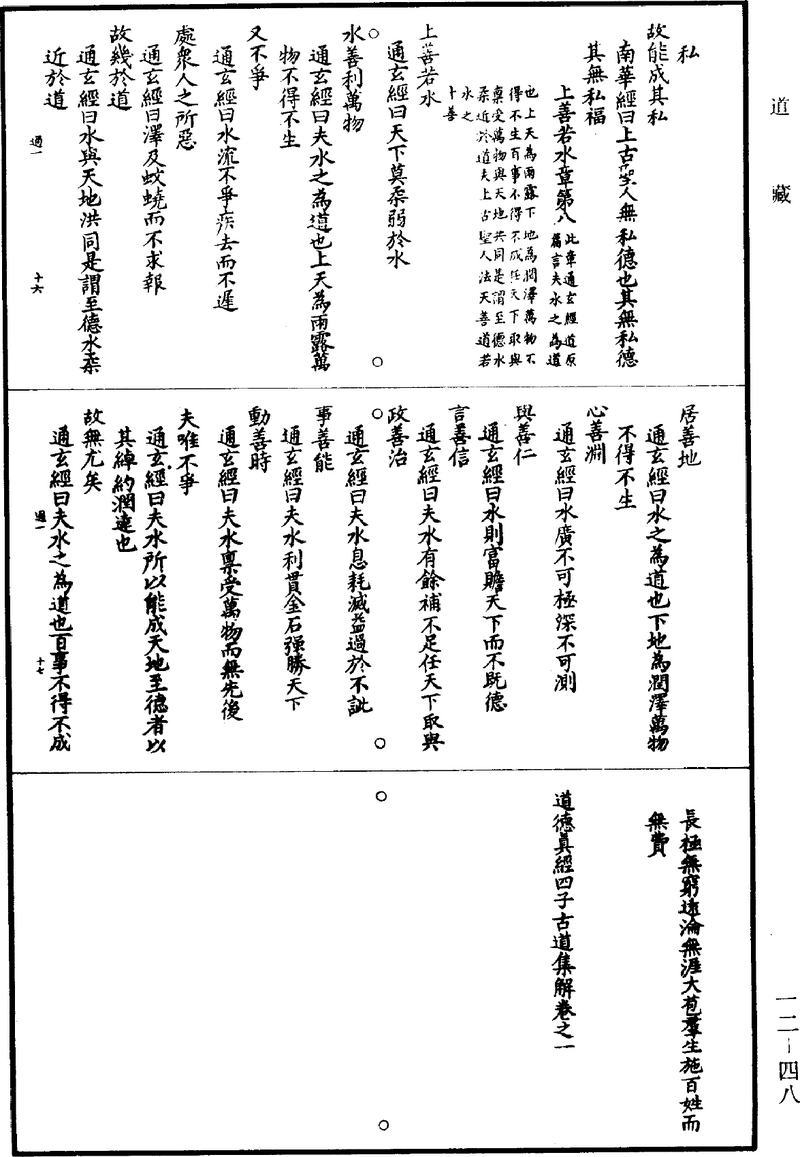 道藏
私
故能成其私
南華經曰上古聖人無私德也其無私德
其無私福
上善若水章第八
此章通玄經道原
篇言夫水之為道
也上天為雨露下地為潤澤萬物不
得不生百事不得不成任天下取與
稟受萬物與天地共同是謂至德水
柔近於道夫上古聖人法天善道若
水之
十善
上善若水
通玄經曰天下莫柔弱於水
水善利萬物
通玄經曰夫水之為道也上天為雨露萬
物不得不生
又不爭
通玄經曰水流不爭疾去而不遲
處衆人之所惡
通玄經曰澤及蚑蟯而不求報
故幾於道
通玄經曰水與天地洪同是謂至德水柔
近於道
過一 十六
居善地
通玄經曰水之為道也下地為潤澤萬物
不得不生
心善淵
通玄經曰水廣不可極深不可測
與善仁
通玄經曰水則富贍天下而不既德
言善信
通玄經曰夫水有餘補不足任天下取與
政善治
通玄經曰夫水息耗減益過於不訾
事善能
通玄經曰夫水利貫金石强勝天下
動善時
通玄經曰夫水稟受萬物而無先後
夫唯不爭
通玄經曰夫水所以能成天地至德者以
其綽約潤達也
故無尤矣
通玄經曰夫水之為道也百事不得不成
過一 十七
長極無窮遠淪無涯大苞羣生施百姓而
無費
道德真經四子古道集解卷之一
一二–四八